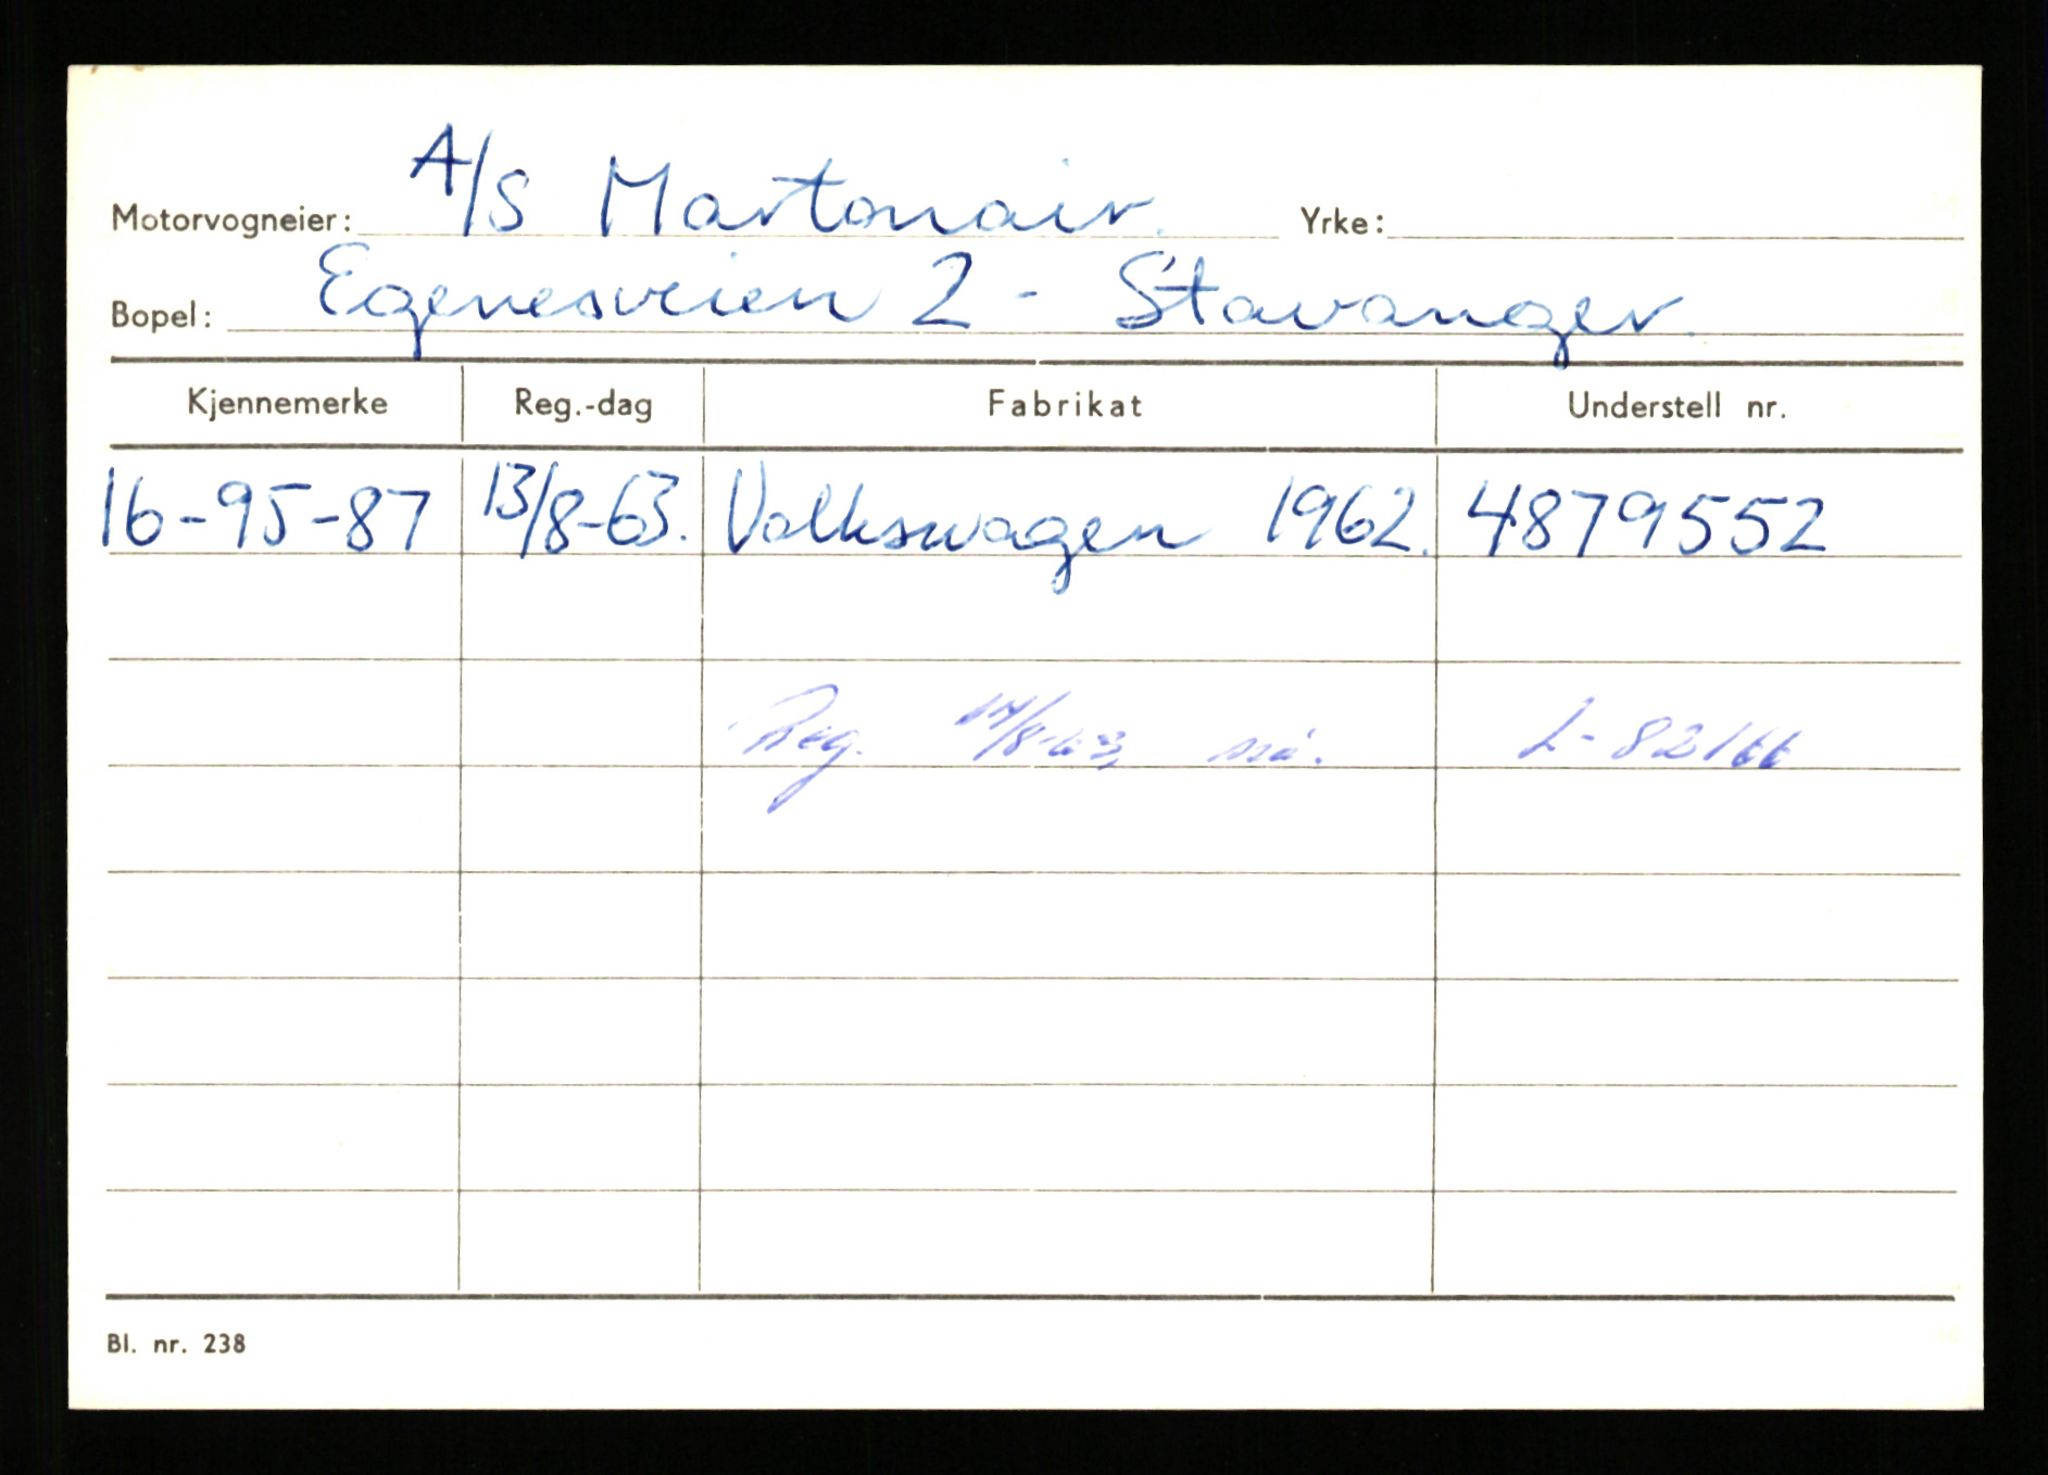 Motorvogneier: A/S Martonair. Yrke:
Bopel: Egenesveien 2 - Stavanger.
Kjennemerke Reg.-dag Fabrikat Understell nr.
16-95-87 13/8-63. Volkswagen 1962. 4879552
Reg. 14/8-63, nå. L-82166
Bl. nr. 238